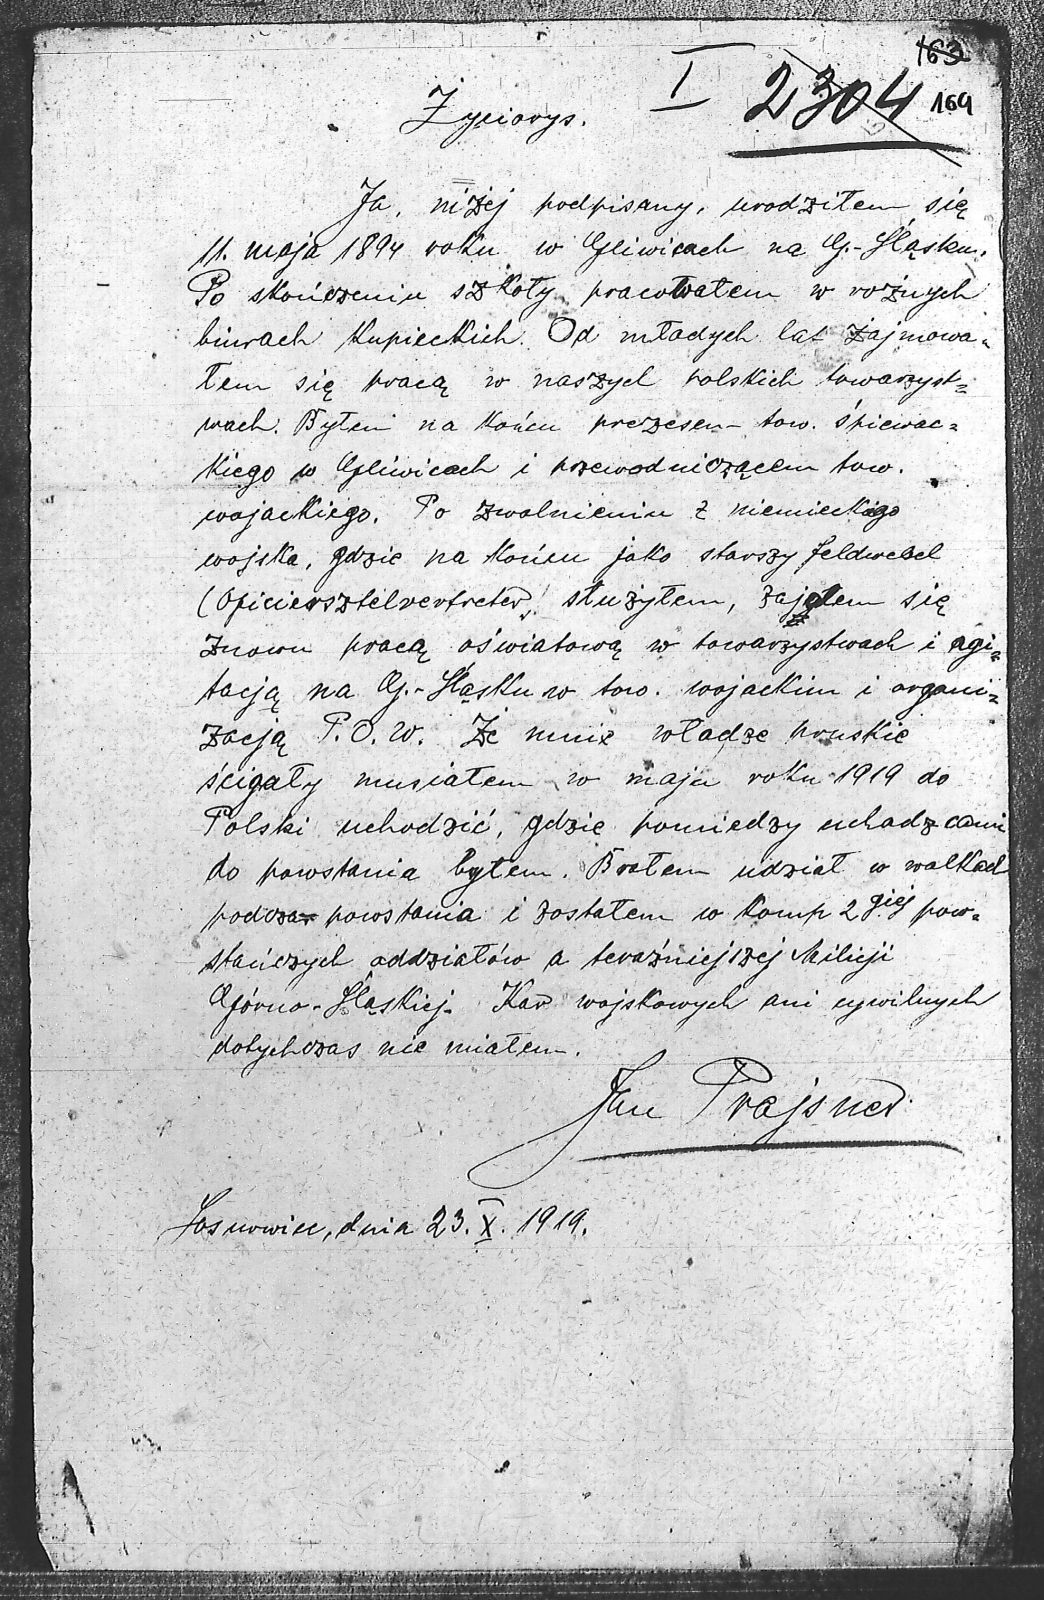 163
I 2304 164
Życiorys.
Ja, niżej podpisany, urodziłem się
11. maja 1894 roku w Gliwicach na G.-Śląsku.
Po skończeniu szkoły pracowałem w rożnych
biurach kupieckich. Od młodych lat zajmowa-
łem się pracą w naszych polskich towarzyst=
wach. Byłem na końcu prezesem tow. śpiewac=
kiego w Gliwicach i przewodniczącem tow.
wojackiego. Po zwolnieniu z niemieckiego
wojska, gdzie na końcu jako starszy feldwebel
(Oficiersztelvertreter) służyłem, zajełem się
znowu pracą oświatową w towarzystwach i agi=
tacją na G.-Śląsku w tow. wojackim i organi=
zacją P.O.W. Że mnie władze pruskie
ścigały musiałem w maju roku 1919 do
Polski uchodzić, gdzie pomiedzy uchadzcami
do powstania byłem. Brałem udział w walkach
podczas powstania i zostałem w Komp 2giej pow=
stańczych oddziałów a teraźniejszej Milicji
Górno-Śląskiej. Kar wojskowych ani cywilnych
dotychczas nie miałem.
Jan Prajsner
Sosnowiec, dnia 23. X. 1919.